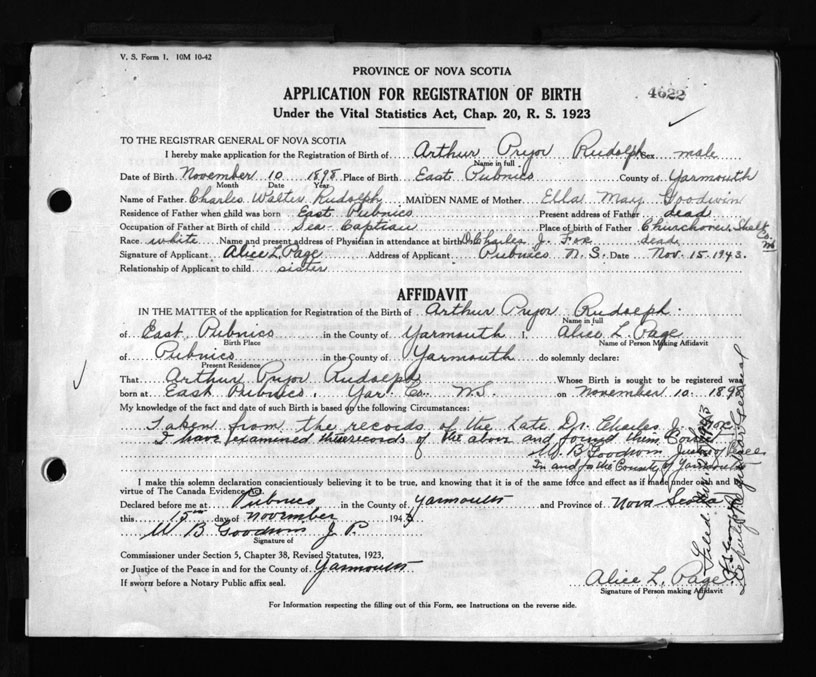 V. S. Form 1. 10M 10-42
PROVINCE OF NOVA SCOTIA
APPLICATION FOR REGISTRATION OF BIRTH
4622
Under the Vital Statistics Act, Chap. 20, R. S. 1923
TO THE REGISTRAR GENERAL OF NOVA SCOTIA
I hereby make application for the Registration of Birth of Arthur Pryor Rudolph Sex male
Name in full
Date of Birth November 10 1898 Place of Birth East Pubnico County of Yarmouth
Month Date Year
Name of Father Charles Walter Rudolph MAIDEN NAME of Mother Ella May Goodwin
Residence of Father when child was born East Pubnico Present address of Father dead
Occupation of Father at Birth of child Sea Captain Place of birth of Father Churchover Shel. Co. N.S.
Race white Name and present address of Physician in attendance at birth Dr Charles J. Fox dead
Signature of Applicant Alice L. Page Address of Applicant Pubnico N.S. Date Nov. 15. 1943.
Relationship of Applicant to child sister
AFFIDAVIT
IN THE MATTER of the application for Registration of the Birth of Arthur Pryor Rudolph
Name in full
of East Pubnico in the County of Yarmouth I, Alice L. Page
Birth Place Name of Person Making Affidavit
of Pubnico in the County of Yarmouth do solemnly declare:
Present Residence
That Arthur Pryor Rudolph Whose Birth is sought to be registered was
born at East Pubnico, Yar. Co. N.S. on November 10. 1898
My knowledge of the fact and date of such Birth is based on the following Circumstances:
Taken from the records of the Late Dr. Charles J. Fox
I have examined the records of the above and found them Correct
W. B Goodwin Justice of Peace
In and for the County of Yarmouth
I make this solemn declaration conscientiously believing it to be true, and knowing that it is of the same force and effect as if made under oath and by
virtue of The Canada Evidence Act
Declared before me at Pubnico in the County of Yarmouth and Province of Nova Scotia
this 15th day of November 1943
W B Goodwin J. P.
Signature of
Commissioner under Section 5, Chapter 38, Revised Statutes, 1923,
or Justice of the Peace in and for the County of Yarmouth
If sworn before a Notary Public affix seal.
Alice L. Page
Signature of Person making Affidavit
For Information respecting the filling out of this Form, see Instructions on the reverse side.
Filed Nov. 1943
Deputy Registrar General